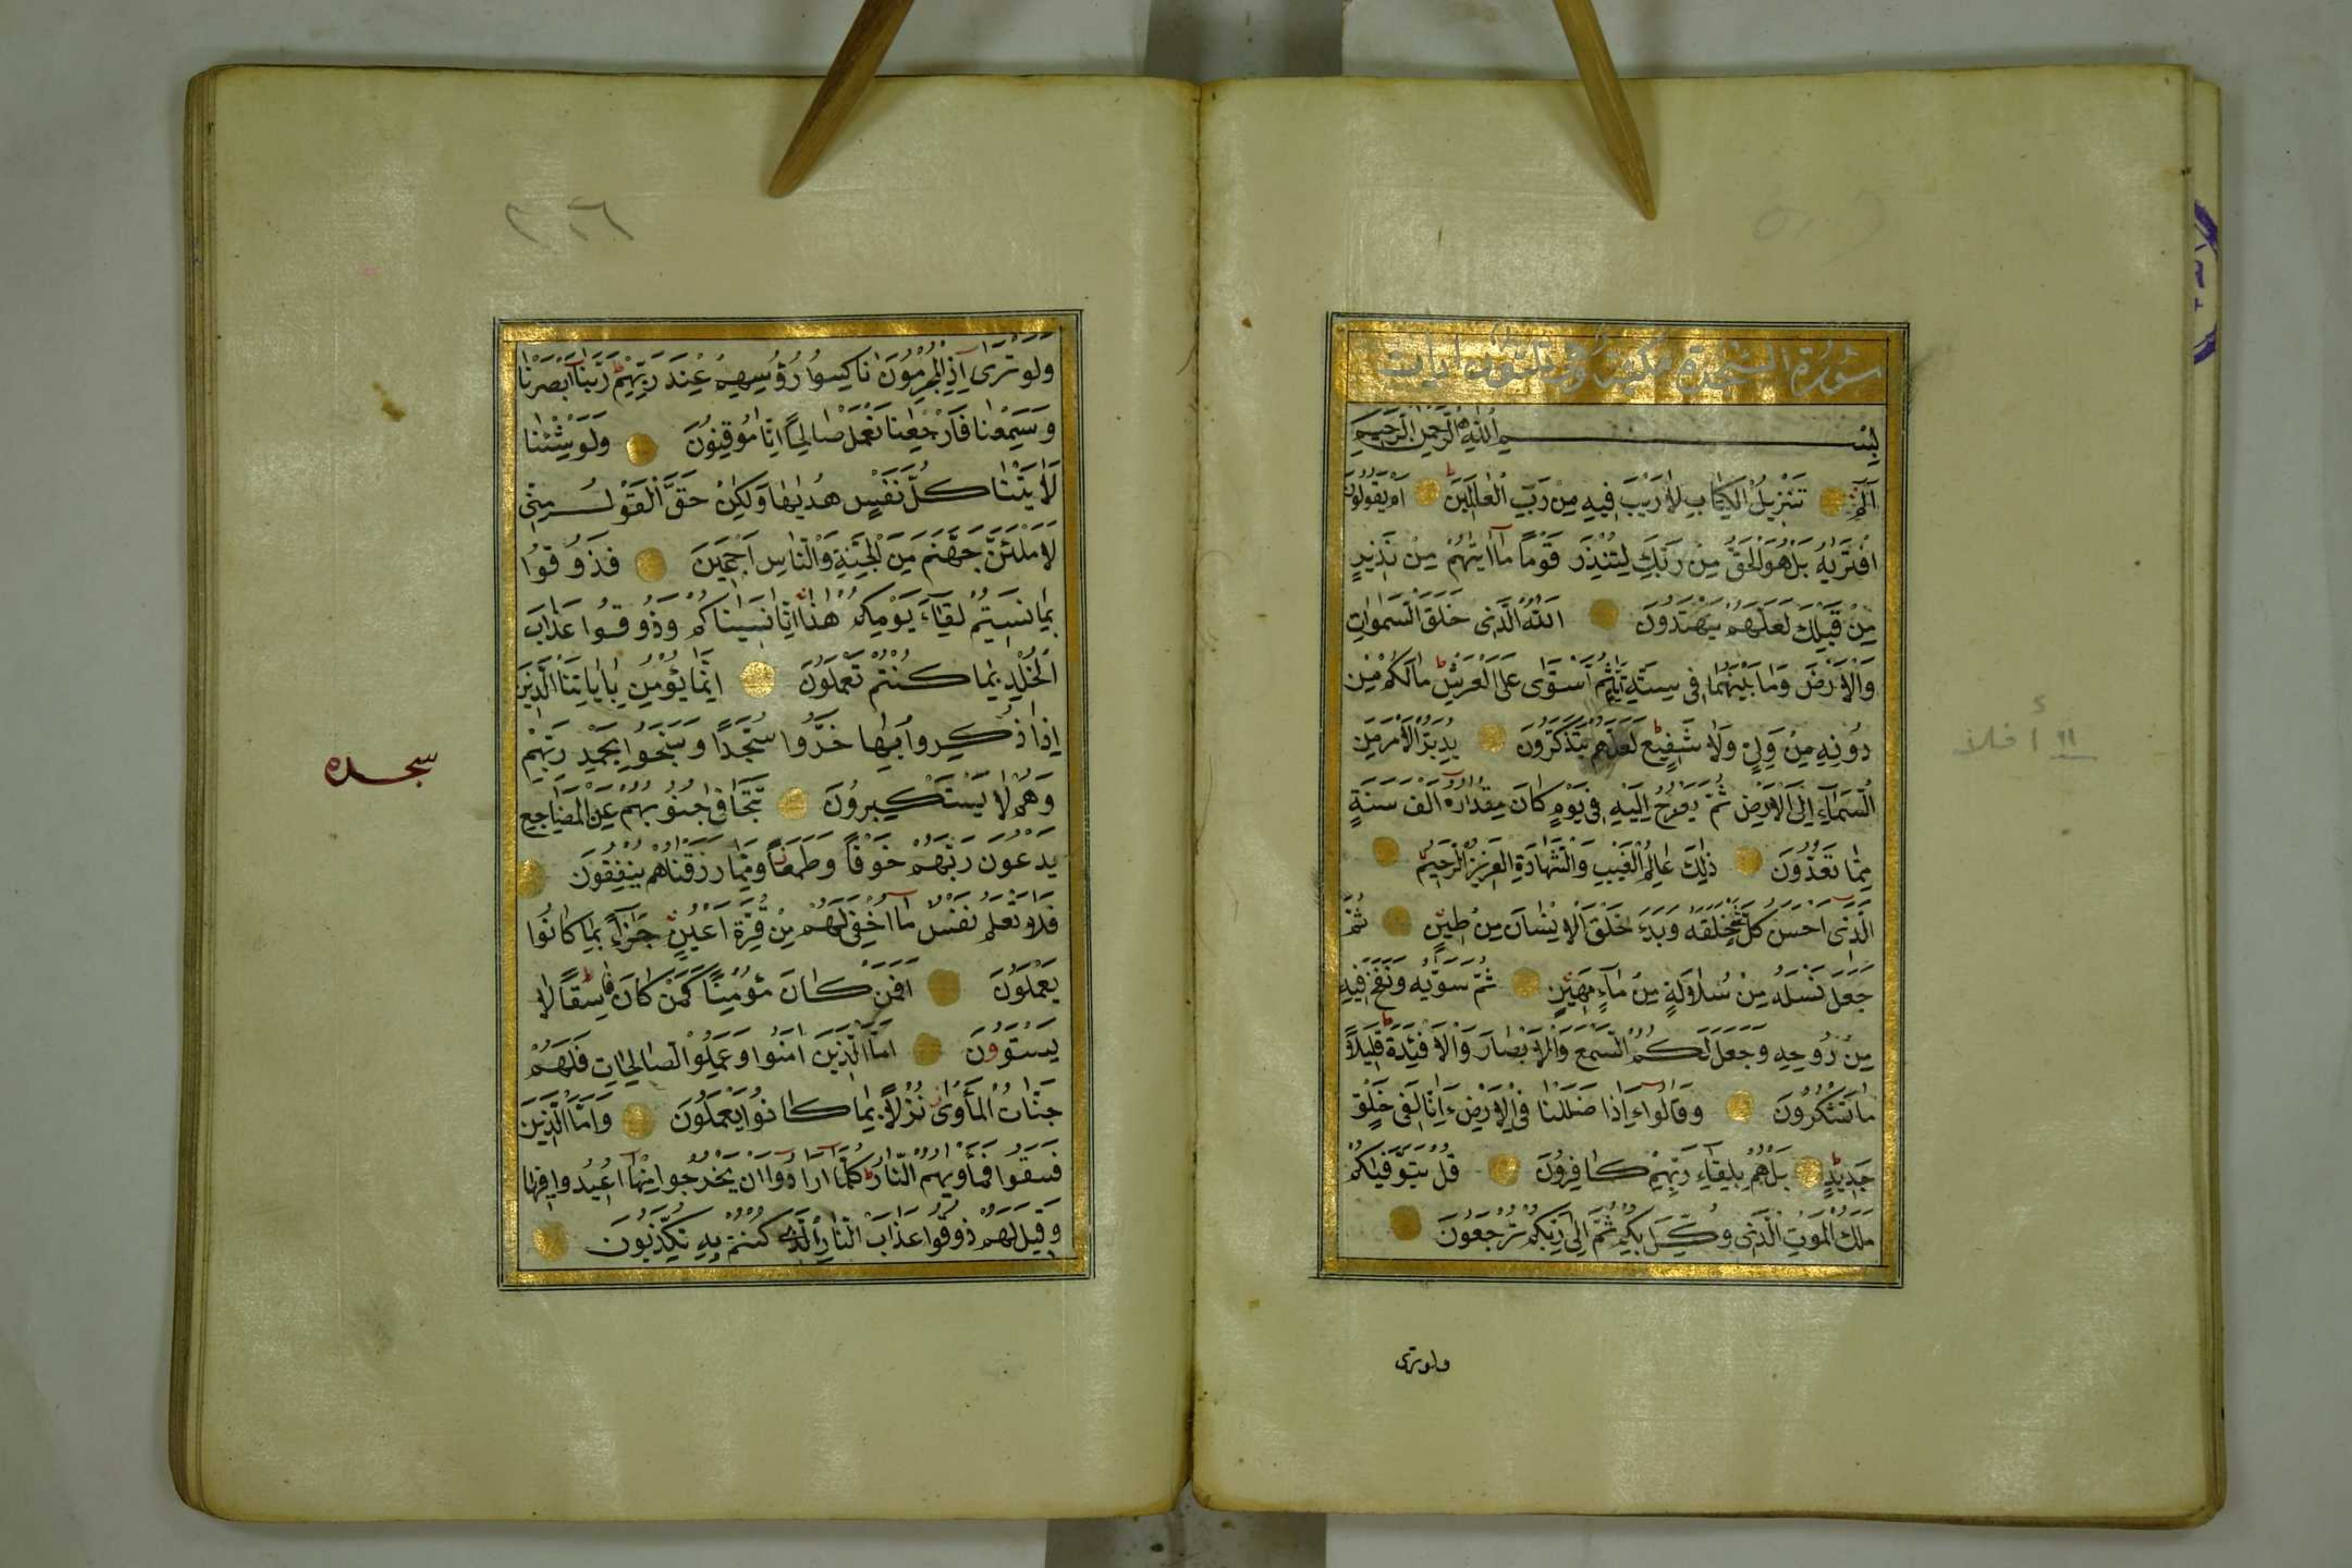 سورة السجدة مكية وهي ثلثون ايات
بسم الله الرحمن الرحيم
الٓمٓ تَنْزِيلُ الْكِتَابِ لَا رَيْبَ فِيهِ مِنْ رَبِّ الْعَالَمِينَ اَمْ يَقُولُونَ
افْتَرٰيهُ بَلْ هُوَ الْحَقُّ مِنْ رَبِّكَ لِتُنْذِرَ قَوْمًا مَٓا اَتٰيهُمْ مِنْ نَذِيرٍ
مِنْ قَبْلِكَ لَعَلَّهُمْ يَهْتَدُونَ اَللّٰهُ الَّذِى خَلَقَ السَّمٰوَاتِ
وَالْاَرْضَ وَمَا بَيْنَهُمَا فِى سِتَّةِ اَيَّامٍ ثُمَّ اسْتَوٰى عَلَى الْعَرْشِ مَالَكُمْ مِنْ
دُونِهِ مِنْ وَلِىٍّ وَلَا شَفِيعٍ لعلهم يَتَذَكَّرُونَ يُدَبِّرُ الْاَمْرَ مِنَ
السَّمَٓاءِ اِلَى الْاَرْضِ ثُمَّ يَعْرُجُ اِلَيْهِ فِى يَوْمٍ كَانَ مِقْدَارُهُ اَلْفَ سَنَةٍ
مِمَّا تَعُدُّونَ ذٰلِكَ عَالِمُ الْغَيْبِ وَالشَّهَادَةِ الْعَزِيزُ الرَّحِيمُ
الَّذِى اَحْسَنَ كُلَّ شَىْءٍ خَلَقَهُ وَبَدَءَ خَلْقَ الْاِنْسَانِ مِنْ طِينٍ ثُمَّ
جَعَلَ نَسْلَهُ مِنْ سُلَالَةٍ مِنْ مَٓاءٍ مَهِينٍ ثُمَّ سَوّٰيهُ وَنَفَخَ فِيهِ
مِنْ رُوحِهِ وَجَعَلَ لَكُمُ السَّمْعَ وَالْاَبْصَارَ وَالْاَفْئِدَةَ قَلِيلًا
مَا تَشْكُرُونَ وَقَالُٓوا ءَاِذَا ضَلَلْنَا فِى الْاَرْضِ ءَاِنَّا لَفِى خَلْقٍ
جَدِيدٍ بَلْ هُمْ بِلِقَٓاءِ رَبِّهِمْ كَافِرُونَ قُلْ يَتَوَفّٰيكُمْ
مَلَكُ الْمَوْتِ الَّذِى وُكِّلَ بِكُمْ ثُمَّ اِلٰى رَبِّكُمْ تُرْجَعُونَ
ولو ترى
٣١٦
وَلَوْ تَرٰٓى اِذِ الْمُجْرِمُونَ نَاكِسُوا رُؤُسِهِمْ عِنْدَ رَبِّهِمْ رَبَّنَٓا اَبْصَرْنَا
وَسَمِعْنَا فَارْجِعْنَا نَعْمَلْ صَالِحًا اِنَّا مُوقِنُونَ وَلَوْ شِئْنَا
لَاٰتَيْنَا كُلَّ نَفْسٍ هُدٰيهَا وَلٰكِنْ حَقَّ الْقَوْلُ مِنِّى
لَاَمْلَئَنَّ جَهَنَّمَ مِنَ الْجِنَّةِ وَالنَّاسِ اَجْمَعِينَ فَذُوقُوا
بِمَا نَسِيتُمْ لِقَٓاءَ يَوْمِكُمْ هٰذَا اِنَّا نَسِينَاكُمْ وَذُوقُوا عَذَابَ
الْخُلْدِ بِمَا كُنْتُمْ تَعْمَلُونَ اِنَّمَا يُؤْمِنُ بِاٰيَاتِنَا الَّذِينَ
اِذَا ذُكِّرُوا بِهَا خَرُّوا سُجَّدًا وَسَبَّحُوا بِحَمْدِ رَبِّهِمْ
وَهُمْ لَا يَسْتَكْبِرُونَ تَتَجَافٰى جُنُوبُهُمْ عَنِ الْمَضَاجِعِ
يَدْعُونَ رَبَّهُمْ خَوْفًا وَطَمَعًا وَمِمَّا رَزَقْنَاهُمْ يُنْفِقُونَ
فَلَا تَعْلَمُ نَفْسٌ مَٓا اُخْفِىَ لَهُمْ مِنْ قُرَّةِ اَعْيُنٍ جَزَٓاءً بِمَا كَانُوا
يَعْمَلُونَ اَفَمَنْ كَانَ مُؤْمِنًا كَمَنْ كَانَ فَاسِقًا لَا
يَسْتَوُونَ اَمَّا الَّذِينَ اٰمَنُوا وَعَمِلُوا الصَّالِحَاتِ فَلَهُمْ
جَنَّاتُ الْمَأْوٰى نُزُلًا بِمَا كَانُوا يَعْمَلُونَ وَاَمَّا الَّذِينَ
فَسَقُوا فَمَأْوٰيهُمُ النَّارُ كُلَّمَٓا اَرَادُٓوا اَنْ يَخْرُجُوا مِنْهَٓا اُعِيدُوا فِيهَا
وَقِيلَ لَهُمْ ذُوقُوا عَذَابَ النَّارِ الَّذِى كُنْتُمْ بِهِ تُكَذِّبُونَ
سجده